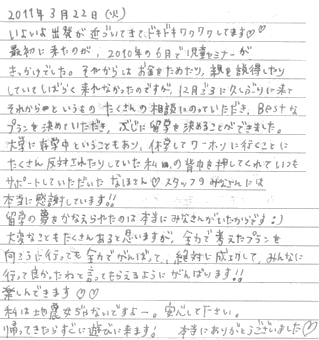 2011年3月22日(火)
いよいよ出発が近づいてきて、ドキドキワクワクしてます♡♡
最初に来たのが、2010年の6月で児童セミナーが
きっかけでした。それからは お金をためたり、親を説得したり
していてしばらく来れなかったのですが、12月で3に久しぶりに来て
それからというものたくさんの相談にのっていただき、Bestな
プランを決めていただき、ぶじに留学を決めることができました。
大学に在学中ということもあり、休学してワーホリに行くことに
たくさん反対されたりしていた私の背中を押してくれていつも
サポートしていただいた なほさん♡ スタッフのみなさんには
本当に感謝しています!!
留学の夢をかなえられたのは本当にみなさんがいたからです:)
大変なこともたくさんあると思いますが、全力で考えたプランを
向こうに行っても全力でがんばって、絶対に成功して、みんなに
行って良かったねと言ってもらえるようにがんばります!!
楽しんできます♡♡
私は地震女ぢゃないですよー。安心して下さい。
帰ってきたらすぐに遊びに来ます! 本当にありがとうございました♡